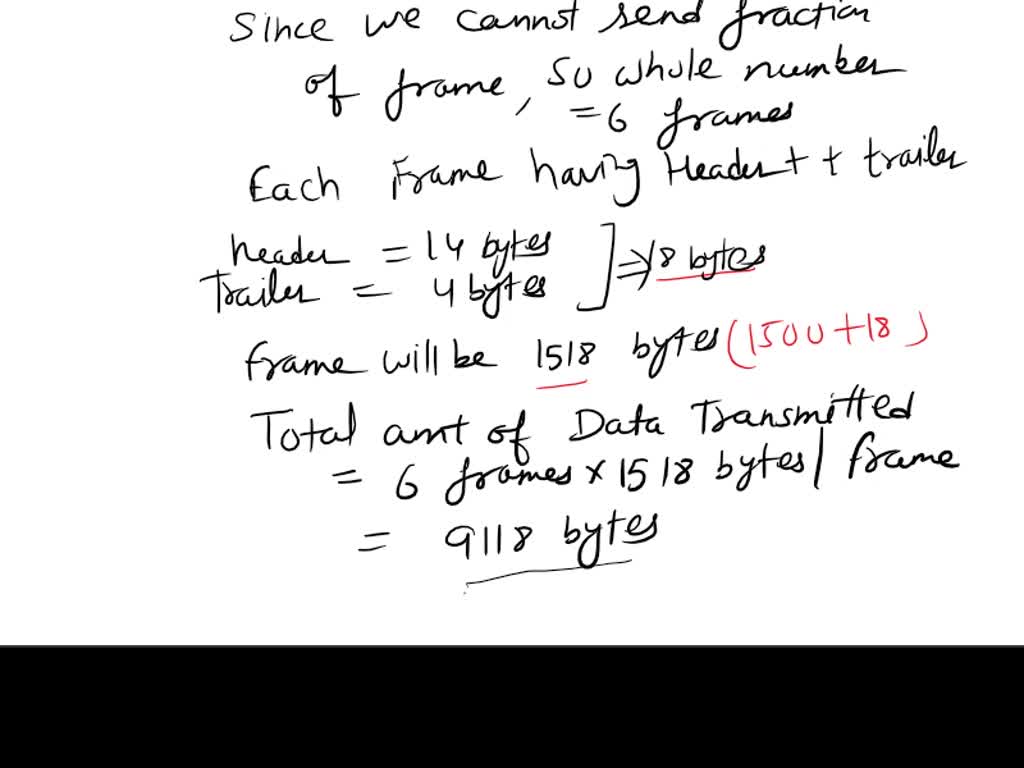 Since we cannot send fraction
of frame, so whole number
= 6 frames
Each Frame having Header + + trailer
header = 14 bytes
Trailer = 4 bytes ] ⇒ 18 bytes
frame will be 1518 bytes (1500 + 18)
Total amt of Data Transmitted
= 6 frames × 1518 bytes / frame
= 9118 bytes